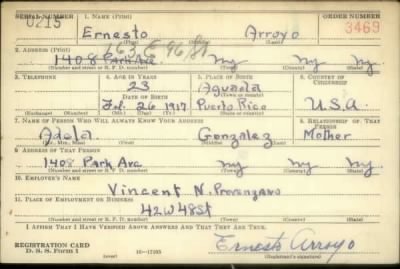 SERIAL NUMBER 1. NAME (Print) ORDER NUMBER
0215 Ernesto Arroyo 3469
(First) (Middle) (Last)
163 E 96 St
2. ADDRESS (Print)
1408 Park Ave. ny ny ny
(Number and street or R. F. D. number) (Town) (County) (State)
3. TELEPHONE 4. AGE IN YEARS 5. PLACE OF BIRTH 6. COUNTRY OF CITIZENSHIP
23 Aguada
DATE OF BIRTH (Town or county)
Feb. 26 1917 Puerto Rico U.S.A.
(Exchange) (Number) (Mo.) (Day) (Yr.) (State or country)
7. NAME OF PERSON WHO WILL ALWAYS KNOW YOUR ADDRESS 8. RELATIONSHIP OF THAT PERSON
Adela Gonzalez Mother
(Mr., Mrs., Miss) (First) (Middle) (Last)
9. ADDRESS OF THAT PERSON
1408 Park Ave ny ny ny
(Number and street or R. F. D. number) (Town) (County) (State)
10. EMPLOYER'S NAME
Vincent N. Provenzano
11. PLACE OF EMPLOYMENT OR BUSINESS
42W48St
(Number and street or R. F. D. number) (Town) (County) (State)
I AFFIRM THAT I HAVE VERIFIED ABOVE ANSWERS AND THAT THEY ARE TRUE.
REGISTRATION CARD
D. S. S. Form 1 16-17105 Ernesto Arroyo
(Registrant's signature)